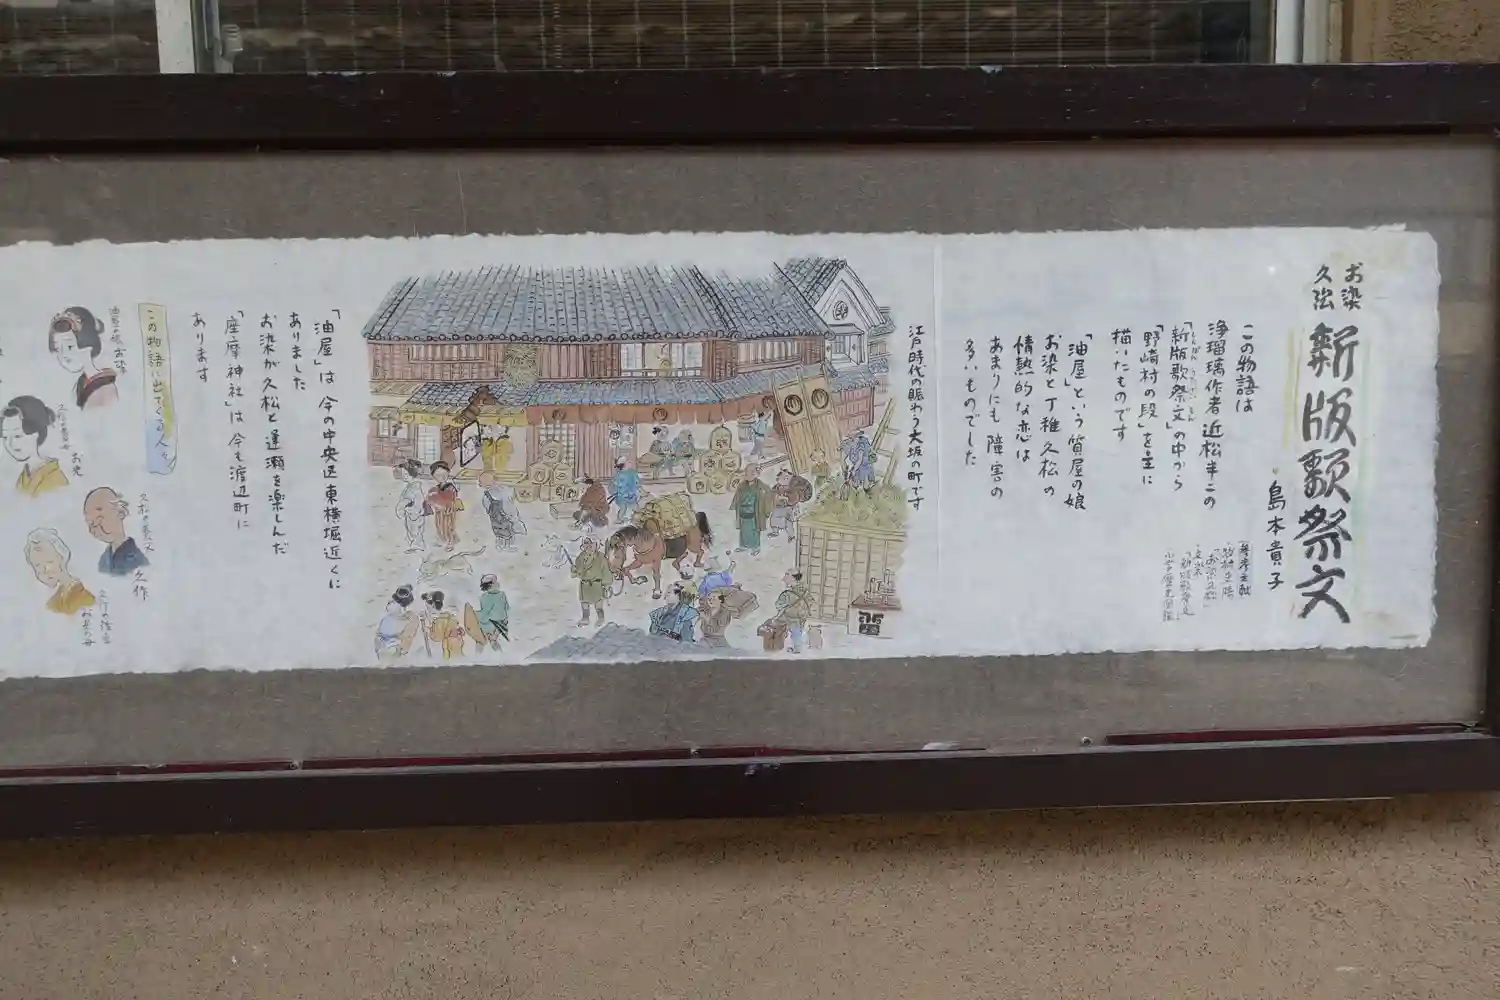 お染
久松
新版歌祭文
島本貴子
この物語は
浄瑠璃作者近松半二の
「新版歌祭文」の中から
しんぱんうたざいもん
「野崎村の段」を主に
描いたものです
「油屋」という質屋の娘
お染と丁稚久松の
情熱的な恋は
あまりにも障害の
多いものでした
江戸時代の賑わう大坂の町です
「油屋」は今の中央区東横堀近くに
ありました
お染が久松と逢瀬を楽しんだ
「座摩神社」は今も渡辺町に
あります
この物語に出てくる人々
油屋の娘お染
お光
久松の養父
久作